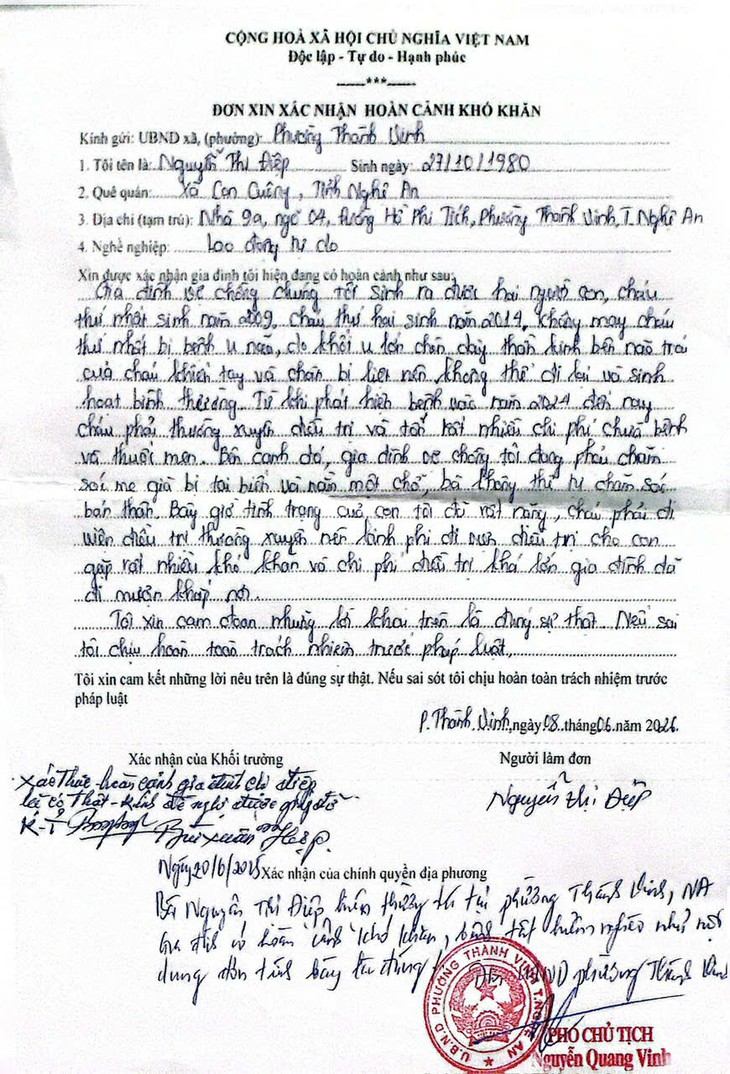 CỘNG HOÀ XÃ HỘI CHỦ NGHĨA VIỆT NAM
Độc lập - Tự do - Hạnh phúc
-----***-----
ĐƠN XIN XÁC NHẬN HOÀN CẢNH KHÓ KHĂN
Kính gửi: UBND xã, (phường): Phường Thành Vinh
1. Tôi tên là: Nguyễn Thị Điệp Sinh ngày: 27/10/1980
2. Quê quán: Xã Con Cuông, Tỉnh Nghệ An
3. Địa chỉ (tạm trú): Nhà 9a, ngõ 04, đường Hồ Phi Tích, Phường Thành Vinh, T. Nghệ An
4. Nghề nghiệp: Lao động tự do
Xin được xác nhận gia đình tôi hiện đang có hoàn cảnh như sau:
Gia đình vợ chồng chúng tôi sinh ra được hai người con, cháu
thứ nhất sinh năm 2009, cháu thứ hai sinh năm 2014, không may cháu
thứ nhất bị bệnh u não, do khối u lớn chèn dây thần kinh bên não trái
của cháu khiến tay và chân bị liệt nên không thể đi lại và sinh
hoạt bình thường. Từ khi phát hiện bệnh vào năm 2024 đến nay
cháu phải thường xuyên điều trị và tốn rất nhiều chi phí chữa bệnh
và thuốc men. Bên cạnh đó, gia đình vợ chồng tôi đang phải chăm
sóc mẹ già bị tai biến và nằm một chỗ, bà không thể tự chăm sóc
bản thân. Bây giờ tình trạng của con tôi đã rất nặng, cháu phải đi
viện điều trị thường xuyên nên kinh phí đi viện điều trị cho con
gặp rất nhiều khó khăn và chi phí điều trị khá lớn gia đình đã
đi mượn khắp nơi.
Tôi xin cam đoan những lời khai trên là đúng sự thật. Nếu sai
tôi chịu hoàn toàn trách nhiệm trước pháp luật.
Tôi xin cam kết những lời nêu trên là đúng sự thật. Nếu sai sót tôi chịu hoàn toàn trách nhiệm trước
pháp luật
P. Thành Vinh, ngày 08 tháng 06 năm 2026
Xác nhận của Khối trưởng Người làm đơn
Xác thực hoàn cảnh gia đình chị Điệp
là có thật - Kính đề nghị được giúp đỡ
K-T Bùi Xuân Hợp
Nguyễn Thị Điệp
Ngày 20/6/2025 Xác nhận của chính quyền địa phương
Bà Nguyễn Thị Điệp hiện thường trú tại phường Thành Vinh, NA
Gia đình có hoàn cảnh khó khăn, như nội
dung đơn trình bày là đúng UBND phường Thành Vinh
U.B.N.D PHƯỜNG THÀNH VINH T.NGHỆ AN
PHÓ CHỦ TỊCH
Nguyễn Quang Vinh